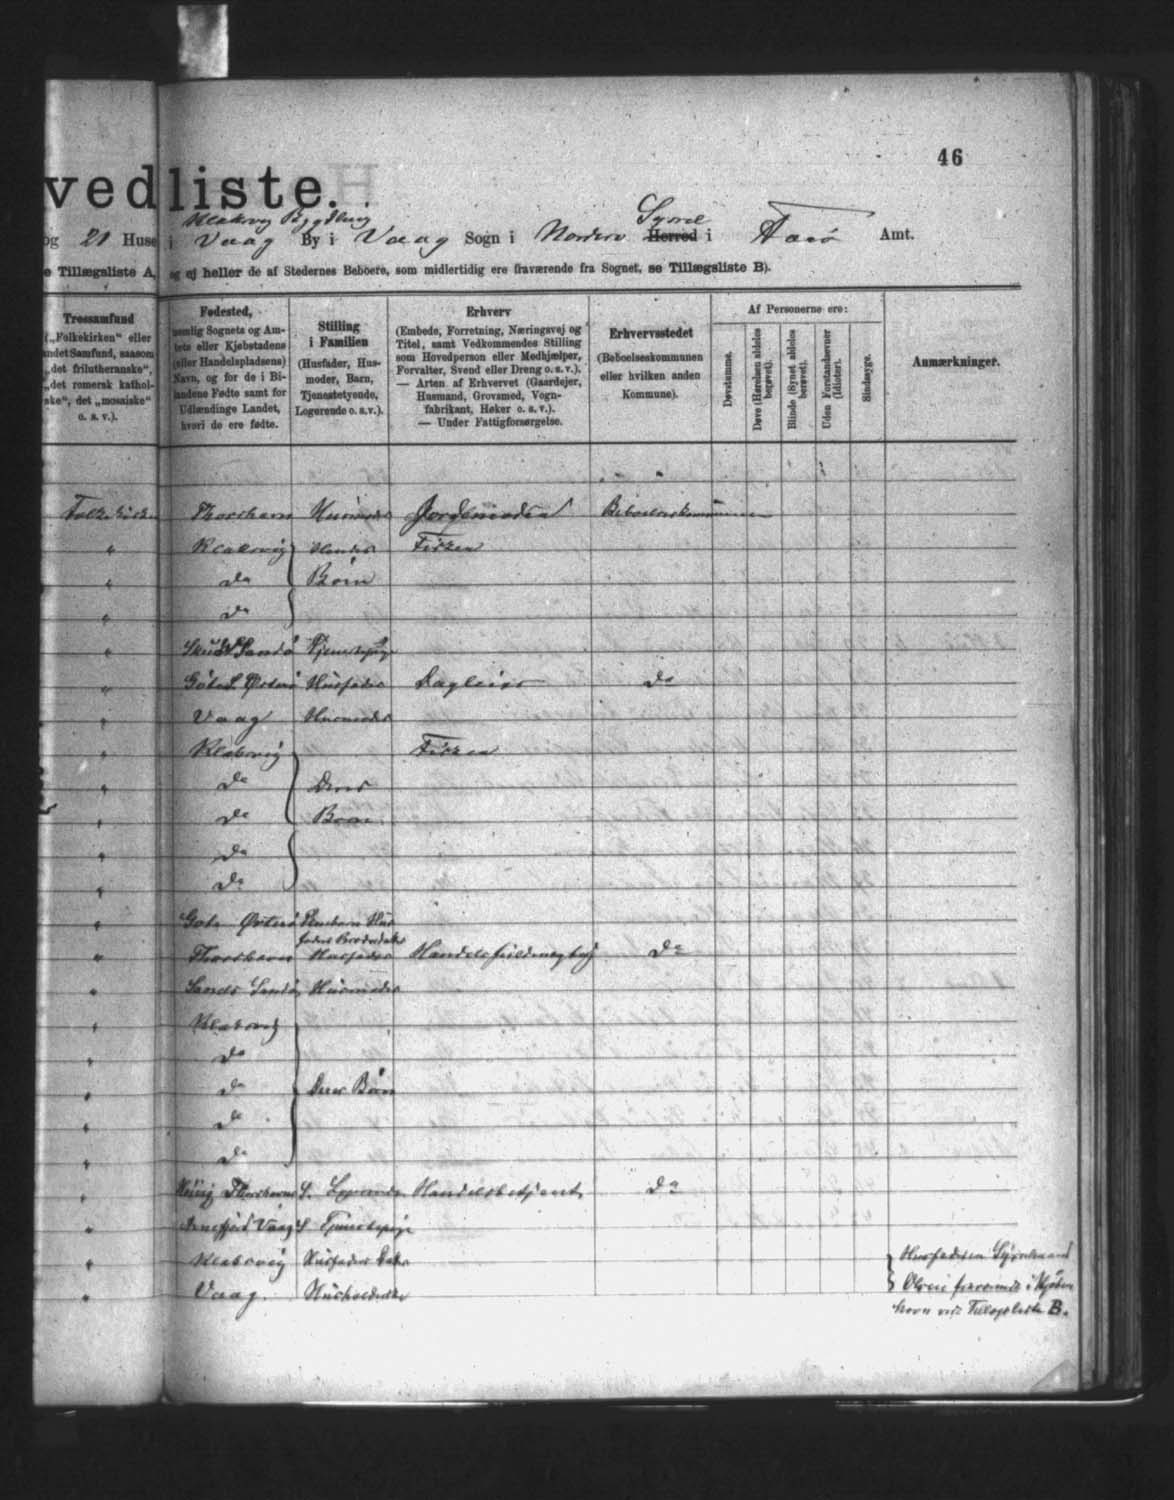 46
vedliste.
Klaksvig Bygdelaug
Syssel
og 21 Huse i Vaag By i Vaag Sogn i Nordero Herred i Færø Amt.
e Tillægsliste A, og ej heller de af Stedernes Beboere, som midlertidig ere fraværende fra Sognet, se Tillægsliste B).
Trossamfund
(„Folkekirken“ eller
andet Samfund, saasom
„det frilutheranske“,
„det romersk kathol-
ske“, det „mosaiske“
o. s. v.).
Fødested,
nemlig Sognets og Am-
tets eller Kjøbstadens
(eller Handelspladsens)
Navn, og for de i Bi-
landene Fødte samt for
Udlændinge Landet,
hvori de ere fødte.
Stilling
i Familien
(Husfader, Hus-
moder, Barn,
Tjenestetyende,
Logerende o. s. v.).
Erhverv
(Embede, Forretning, Næringsvej og
Titel, samt Vedkommendes Stilling
som Hovedperson eller Medhjælper,
Forvalter, Svend eller Dreng o. s. v.).
— Arten af Erhvervet (Gaardejer,
Husmand, Grovsmed, Vogn-
fabrikant, Høker o. s. v.).
— Under Fattigforsørgelse.
Erhvervsstedet
(Beboelseskommunen
eller hvilken anden
Kommune).
Af Personerne ere:
Døvstumme.
Døve (Hørelsen aldeles
berøvet).
Blinde (Synet aldeles
berøvet).
Uden Forstandsevner
(Idioter).
Sindssyge.
Anmærkninger.
Folkekirken Thorshavn Husmoder Jordemoder Beboelseskommunen
" Klaksvig Hendes Fisker
" do Børn
" do
" Sand Sandø Tjenestepige
" Göte S. Østerø Husfader Dagleier do
" Vaag Husmoder
" Klaksvig Fisker
" do Deres
" do Børn
" do
" do
" Gote Østerø
" Thorshavn Husfader Handelsfuldmægtig do
" Sands Sandø Husmoder
" Klaksvig
" do
" do Deres Børn
" do
" do
Thorshavns S. Handelsbetjent do
" Arnefjord Vaag S. Tjenestepige
" Klaksvig Husfaders Datter
" Vaag. Husholderske
Husfaderen
i Kjøben
havn vide Tillægsliste B.